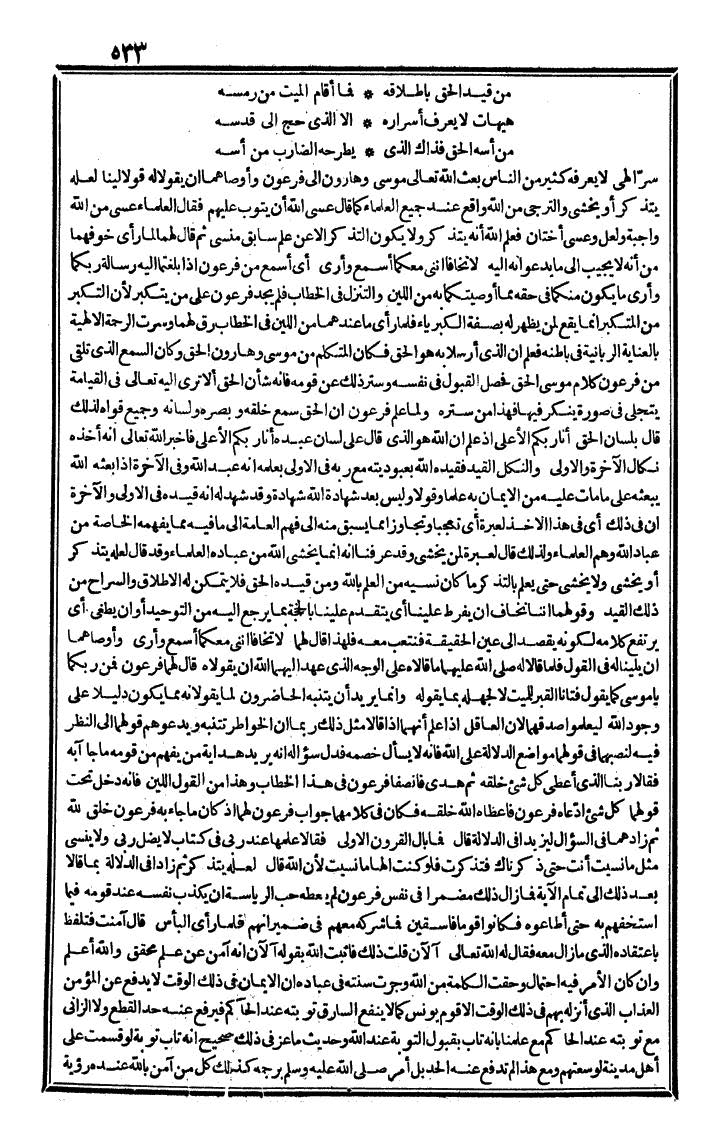 ٥٣٣
من قيد الحق باطلاقه * فما أقام الميت من رمسه
هيهات لا يعرف أسراره * الا الذى حج الى قدسه
من أسه الحق فذاك الذى * يطرحه الضارب من أسه
سرّ الهى لا يعرفه كثير من الناس بعث الله تعالى موسى وهارون الى فرعون وأوصاهما ان يقولا له قولا لينا لعله
يتذكر أو يخشى والترجى من الله واقع عند جميع العلماء كما قال عسى الله أن يتوب عليهم فقال العلماء عسى من الله
واجبة ولعل وعسى أختان فعلم الله أنه يتذكر ولا يكون التذكر الا عن علم سابق منسى ثم قال لهما لما رأى خوفهما
من أنه لا يجيب الى ما يدعوانه اليه لا تخافا اننى معكما أسمع وأرى أى أسمع من فرعون اذا بلغتما اليه رسالة ربكما
وأرى ما يكون منكما فى حقه مما أوصيتكما به من اللين والتنزل فى الخطاب فلم يجد فرعون على من يتكبر لأن التكبر
من المتكبر انما يقع لمن يظهر له بصفة الكبرياء فلما رأى ما عندهما من اللين فى الخطاب رق لهما وسرت الرحمة الالهية
بالعناية الربانية فى باطنه فعلم ان الذى أرسلا به هو الحق فكان المتكلم من موسى وهارون الحق وكان السمع الذى تلقى
من فرعون كلام موسى الحق فحصل القبول فى نفسه وستر ذلك عن قومه فانه شأن الحق ألا ترى اليه تعالى فى القيامة
يتجلى فى صورة ينكر فيها فهذا من ستره ولما علم فرعون ان الحق سمع خلقه و بصره ولسانه وجميع قواه لذلك
قال بلسان الحق أنا ربكم الأعلى اذ علم ان الله هو الذى قال على لسان عبده أنا ربكم الأعلى فاخبر الله تعالى انه أخذه
نكال الآخرة والاولى والنكل القيد فقيده الله بعبوديته مع ربه فى الاولى بعلمه انه عبد الله وفى الآخرة اذا بعثه الله
يبعثه على ما مات عليه من الايمان به علما وقولا وليس بعد شهادة الله شهادة وقد شهد له انه قيده فى الاولى والآخرة
ان فى ذلك أى فى هذا الاخذ لعبرة أى تعجبا وتجاوزا مما يسبق منه الى فهم العامة الى ما فيه مما يفهمه الخاصة من
عباد الله وهم العلماء ولذلك قال لعبرة لمن يخشى وقد عرفنا انه انما يخشى الله من عباده العلماء وقد قال لعله يتذكر
أو يخشى ولا يخشى حتى يعلم بالتذكر ما كان نسيه من العلم بالله ومن قيده الحق فلا يتمكن له الاطلاق والسراح من
ذلك القيد وقولهما اننا نخاف ان يفرط علينا أى يتقدم علينا بالحجة بما يرجع اليه من التوحيد أو ان يطغى أى
يرتفع كلامه لكونه يقصد الى عين الحقيقة فنتعب معه فلهذا قال لهما لا تخافا اننى معكما أسمع وأرى وأوصاهما
ان يلينا له فى القول فلما قالا له صلى الله عليهما ما قالاه على الوجه الذى عهد اليهما الله ان يقولاه قال لهما فرعون فمن ربكما
يا موسى كما يقول فتانا القبر للميت لا لجهله بما يقوله وانما يريد أن يتنبه الحاضرون لما يقولانه مما يكون دليلا على
وجود الله ليعلموا صدقهما لان العاقل اذا علم أنهما اذا قالا مثل ذلك ربما ان الخواطر تتنبه و يدعوهم قولهما الى النظر
فيه لنصبهما فى قولهما مواضع الدلالة على الله فانه لا يسأل خصمه فدل سؤاله انه يريد هداية من يفهم من قومه ما جاآ به
فقالا ربنا الذى أعطى كل شئ خلقه ثم هدى فانصفا فرعون فى هذا الخطاب وهذا من القول اللين فانه دخل تحت
قولهما كل شئ ادّعاه فرعون فاعطاه الله خلقه فكان فى كلامهما جواب فرعون لهما اذ كان ما جاء به فرعون خلق لله
ثم زادهما فى السؤال ليزيدا فى الدلالة قال فما بال القرون الاولى فقالا علمها عند ربى فى كتاب لا يضل ربى ولا ينسى
مثل ما نسيت أنت حتى ذكرناك فتذكرت فلو كنت الها ما نسيت لأن الله قال لعله يتذكر ثم زاد فى الدلالة بما قالا
بعد ذلك الى تمام الآية فما زال ذلك مضمرا فى نفس فرعون لم يعطه حب الرياسة ان يكذب نفسه عند قومه فيما
استخفهم به حتى أطاعوه فكانوا قوما فاسقين فما شركه معهم فى ضميرانهم فلما رأى البأس قال آمنت فتلفظ
باعتقاده الذى ما زال معه فقال له الله تعالى آلآن قلت ذلك فاثبت الله بقوله آلآن انه آمن عن علم محقق والله أعلم
وان كان الأمر فيه احتمال وحقت الكلمة من الله وجرت سنته فى عباده ان الايمان فى ذلك الوقت لا يدفع عن المؤمن
العذاب الذى أنزله بهم فى ذلك الوقت الا قوم يونس كما لا ينفع السارق توبته عند الحاكم فيرفع عنه حد القطع ولا الزانى
مع توبته عند الحاكم مع علمنا بانه تاب بقبول التوبة عند الله وحديث ماعز فى ذلك صحيح انه تاب توبة لو قسمت على
أهل مدينة لوسعتهم ومع هذا لم تدفع عنه الحد بل أمر صلى الله عليه وسلم برجمه كذلك كل من آمن بالله عنده رؤية